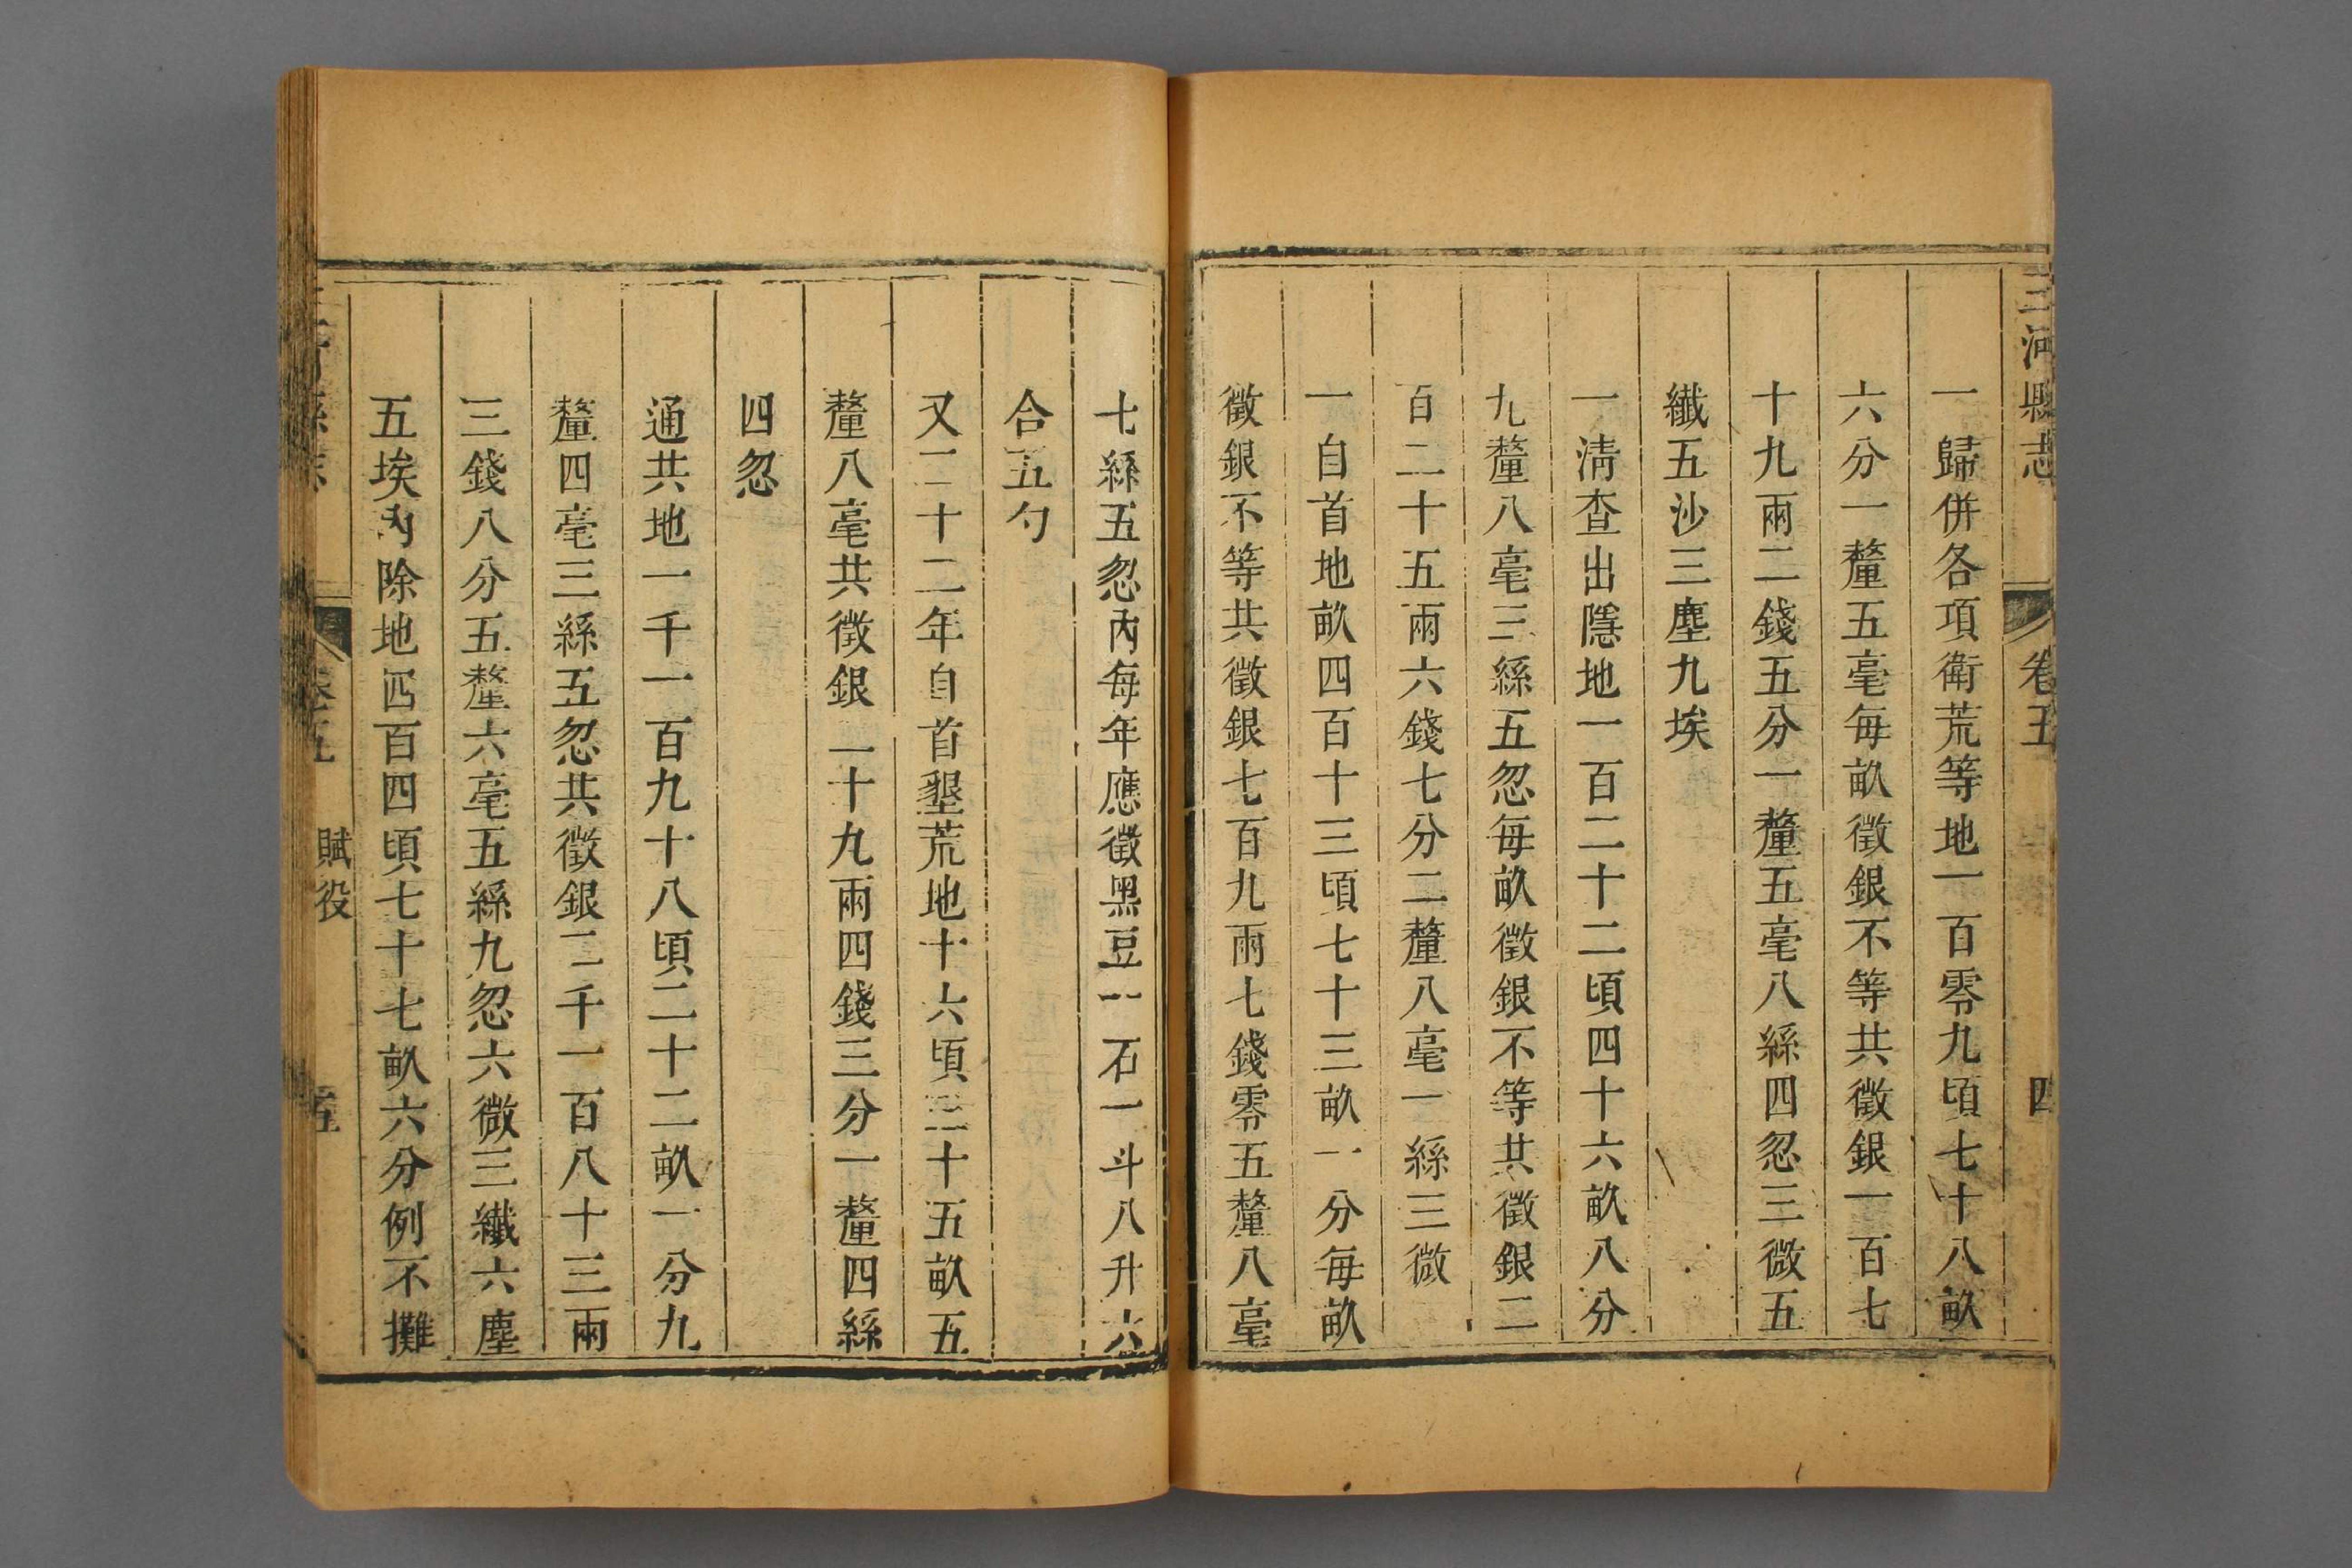 三河縣志 卷五 四
一歸併各項衛荒等地一百零九頃七十八畝
六分一釐五毫每畝徵銀不等共徵銀一百七
十九兩二錢五分一釐五毫八絲四忽三微五
纖五沙三塵九埃
一淸查出隱地一百二十二頃四十六畝八分
九釐八毫三絲五忽每畝徵銀不等共徵銀二
百二十五兩六錢七分二釐八毫一絲三微
一自首地畝四百十三頃七十三畝一分每畝
徵銀不等共徵銀七百九兩七錢零五釐八毫
七絲五忽內每年應徵黑豆一石一斗八升六
合五勺
又二十二年自首墾荒地十六頃三十五畝五
釐八毫共徵銀一十九兩四錢三分一釐四絲
四忽
通共地一千一百九十八頃二十二畝一分九
釐四毫三絲五忽共徵銀二千一百八十三兩
三錢八分五釐六毫五絲九忽六微三纖六塵
五埃內除地四百四頃七十七畝六分例不攤
三河縣志 卷五 賦役 五